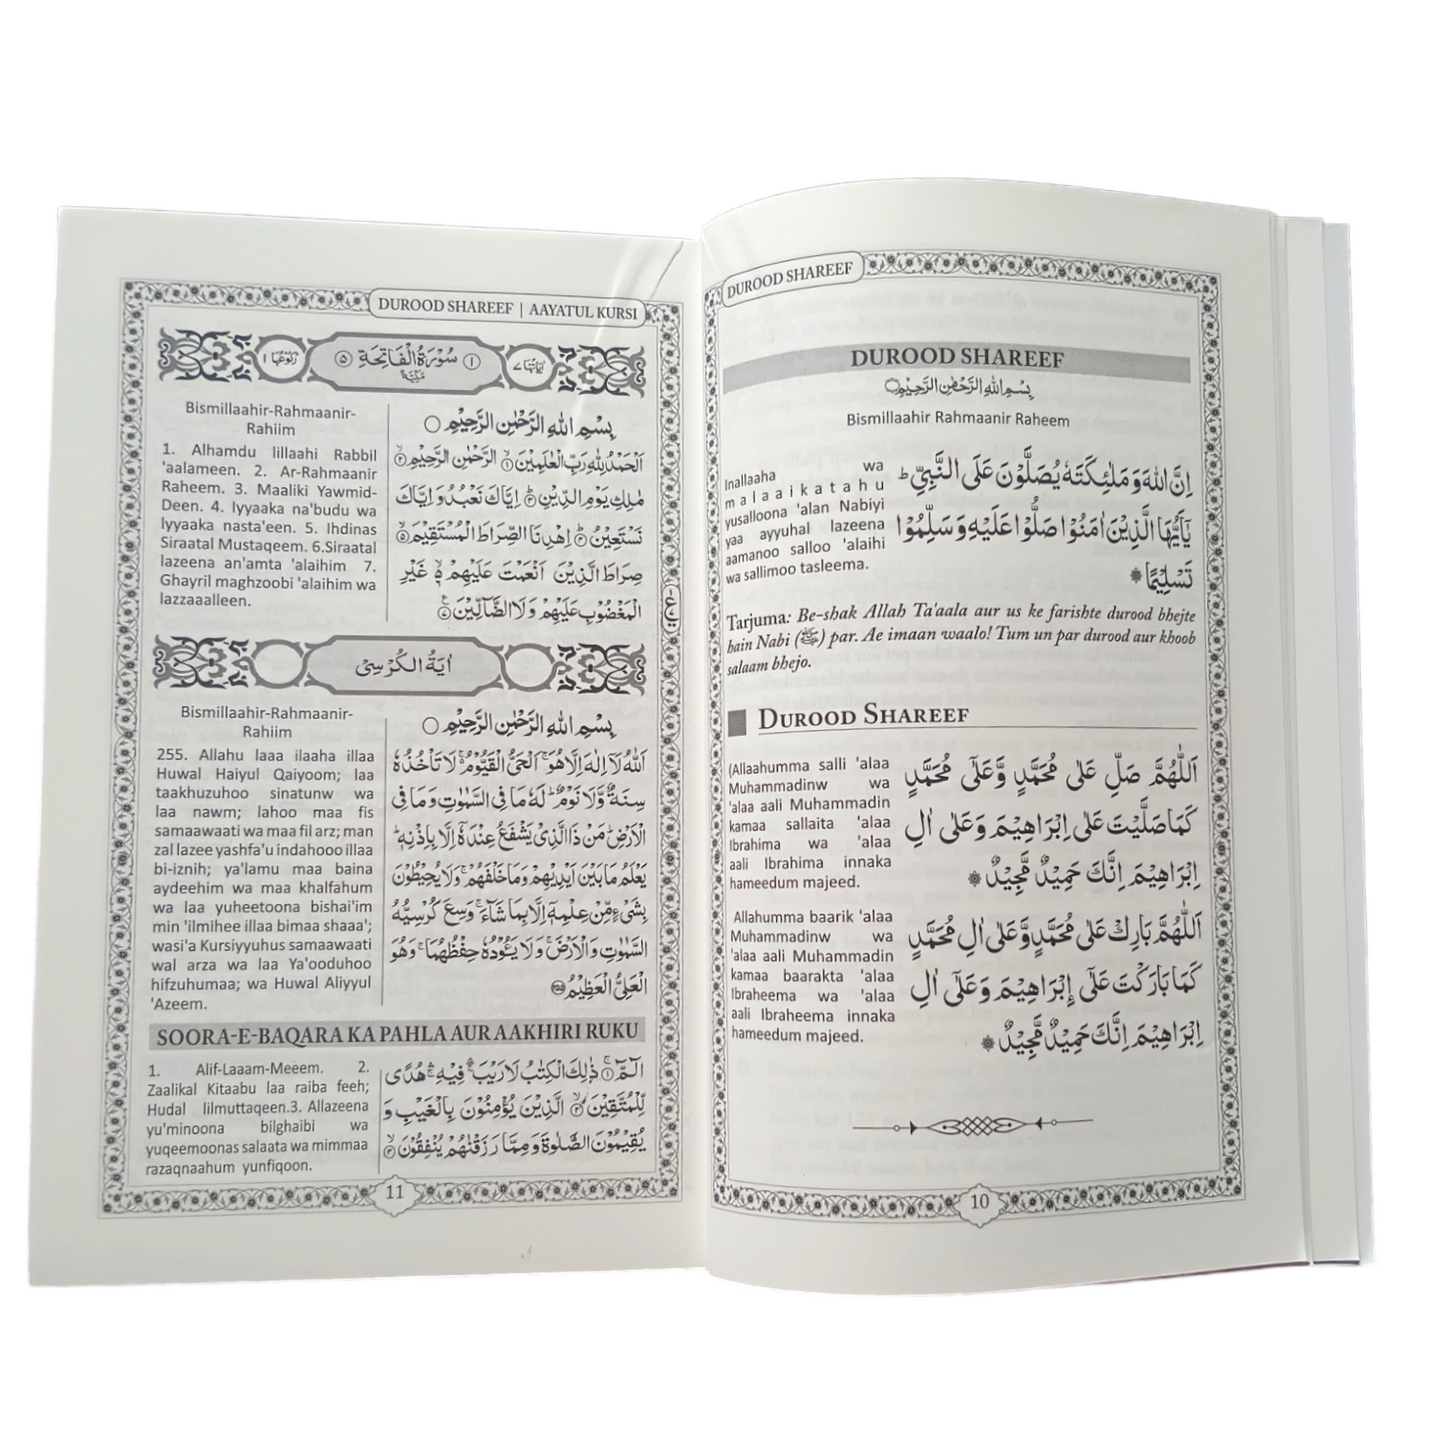 DUROOD SHAREEF
DUROOD SHAREEF
بِسْمِ اللهِ الرَّحْمٰنِ الرَّحِيْمِ
Bismillaahir Rahmaanir Raheem
Inallaaha wa
malaaikatahu
yusalloona 'alan Nabiyi
yaa ayyuhal lazeena
aamanoo salloo 'alaihi
wa sallimoo tasleema.
اِنَّ اللهَ وَ مَلٰٓئِكَتَهٗ يُصَلُّوْنَ عَلَى النَّبِيِّ ؕ
يٰۤاَيُّهَا الَّذِيْنَ اٰمَنُوْا صَلُّوْا عَلَيْهِ وَ سَلِّمُوْا
تَسْلِيْمًا
Tarjuma: Be-shak Allah Ta'aala aur us ke farishte durood bhejte
hain Nabi (ﷺ) par. Ae imaan waalo! Tum un par durood aur khoob
salaam bhejo.
DUROOD SHAREEF
(Allaahumma salli 'alaa
Muhammadinw wa
'alaa aali Muhammadin
kamaa sallaita 'alaa
Ibrahima wa 'alaa
aali Ibrahima innaka
hameedum majeed.
اَللّٰهُمَّ صَلِّ عَلٰى مُحَمَّدٍ وَّعَلٰٓى مُحَمَّدٍ
كَمَا صَلَّيْتَ عَلٰٓى اِبْرَاهِيْمَ وَعَلٰٓى اٰلِ
اِبْرَاهِيْمَ اِنَّكَ حَمِيْدٌ مَّجِيْدٌ
Allahumma baarik 'alaa
Muhammadinw wa
'alaa aali Muhammadin
kamaa baarakta 'alaa
Ibraheema wa 'alaa
aali Ibraheema innaka
hameedum majeed.
اَللّٰهُمَّ بَارِكْ عَلٰى مُحَمَّدٍ وَّعَلٰٓى اٰلِ مُحَمَّدٍ
كَمَا بَارَكْتَ عَلٰٓى اِبْرَاهِيْمَ وَعَلٰٓى اٰلِ
اِبْرَاهِيْمَ اِنَّكَ حَمِيْدٌ مَّجِيْدٌ
10
DUROOD SHAREEF | AAYATUL KURSI
اٰيَاتُهَا ٧ ﴿١﴾ سُوْرَةُ الْفَاتِحَةِ ﴿٥﴾ رُكُوْعُهَا ١
مَكِّيَّةٌ
Bismillaahir-Rahmaanir-
Rahiim
1. Alhamdu lillaahi Rabbil
'aalameen. 2. Ar-Rahmaanir
Raheem. 3. Maaliki Yawmid-
Deen. 4. Iyyaaka na'budu wa
Iyyaaka nasta'een. 5. Ihdinas
Siraatal Mustaqeem. 6.Siraatal
lazeena an'amta 'alaihim 7.
Ghayril maghzoobi 'alaihim wa
lazzaaalleen.
بِسْمِ اللهِ الرَّحْمٰنِ الرَّحِيْمِ
اَلْحَمْدُ لِلّٰهِ رَبِّ الْعٰلَمِيْنَ ۙ﴿١﴾ الرَّحْمٰنِ الرَّحِيْمِ ۙ﴿٢﴾
مٰلِكِ يَوْمِ الدِّيْنِ ؕ﴿٣﴾ اِيَّاكَ نَعْبُدُ وَ اِيَّاكَ
نَسْتَعِيْنُ ؕ﴿٤﴾ اِهْدِنَا الصِّرَاطَ الْمُسْتَقِيْمَ ۙ﴿٥﴾
صِرَاطَ الَّذِيْنَ اَنْعَمْتَ عَلَيْهِمْ ۙ﴿٦﴾ غَيْرِ
الْمَغْضُوْبِ عَلَيْهِمْ وَلَا الضَّآلِّيْنَ
اٰيَةُ الْكُرْسِىْ
Bismillaahir-Rahmaanir-
Rahiim
255. Allahu laaa ilaaha illaa
Huwal Haiyul Qaiyoom; laa
taakhuzuhoo sinatunw wa
laa nawm; lahoo maa fis
samaawaati wa maa fil arz; man
zal lazee yashfa'u indahooo illaa
bi-iznih; ya'lamu maa baina
aydeehim wa maa khalfahum
wa laa yuheetoona bishai'im
min 'ilmihee illaa bimaa shaaa';
wasi'a Kursiyyuhus samaawaati
wal arza wa laa Ya'ooduhoo
hifzuhumaa; wa Huwal Aliyyul
'Azeem.
بِسْمِ اللهِ الرَّحْمٰنِ الرَّحِيْمِ
اَللهُ لَآ اِلٰهَ اِلَّا هُوَ ۚ اَلْحَيُّ الْقَيُّوْمُ ۚ لَا تَاْخُذُهٗ
سِنَةٌ وَّلَا نَوْمٌ ؕ لَهٗ مَا فِى السَّمٰوٰتِ وَمَا فِى
الْاَرْضِ ؕ مَنْ ذَا الَّذِىْ يَشْفَعُ عِنْدَهٗۤ اِلَّا بِاِذْنِهٖ ؕ
يَعْلَمُ مَا بَيْنَ اَيْدِيْهِمْ وَمَا خَلْفَهُمْ ۚ وَلَا يُحِيْطُوْنَ
بِشَىْءٍ مِّنْ عِلْمِهٖۤ اِلَّا بِمَا شَآءَ ۚ وَسِعَ كُرْسِيُّهُ
السَّمٰوٰتِ وَالْاَرْضَ ۚ وَلَا يَـُٔوْدُهٗ حِفْظُهُمَا ۚ وَهُوَ
الْعَلِىُّ الْعَظِيْمُ ﴿٢٥٥﴾
SOORA-E-BAQARA KA PAHLA AUR AAKHIRI RUKU
1. Alif-Laaam-Meeem. 2.
Zaalikal Kitaabu laa raiba feeh;
Hudal lilmuttaqeen.3. Allazeena
yu'minoona bilghaibi wa
yuqeemoonas salaata wa mimmaa
razaqnaahum yunfiqoon.
الٓمّٓ ۚ﴿١﴾ ذٰلِكَ الْكِتٰبُ لَا رَيْبَ ۛ فِيْهِ ۛ هُدًى
لِّلْمُتَّقِيْنَ ۙ﴿٢﴾ الَّذِيْنَ يُؤْمِنُوْنَ بِالْغَيْبِ وَ
يُقِيْمُوْنَ الصَّلٰوةَ وَمِمَّا رَزَقْنٰهُمْ يُنْفِقُوْنَ ۙ﴿٣﴾
11